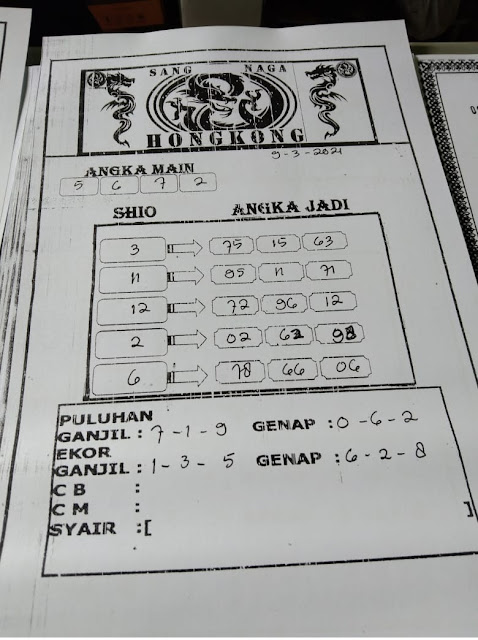 SANG NAGA
HONGKONG
9-3-2021
ANGKA MAIN
5 6 7 2
SHIO ANGKA JADI
3 75 15 63
11 85 11 71
12 72 96 12
2 02 62 98
6 78 66 06
PULUHAN
GANJIL : 7-1-9 GENAP : 0-6-2
EKOR
GANJIL : 1-3-5 GENAP : 6-2-8
C B :
C M :
SYAIR :[ ]